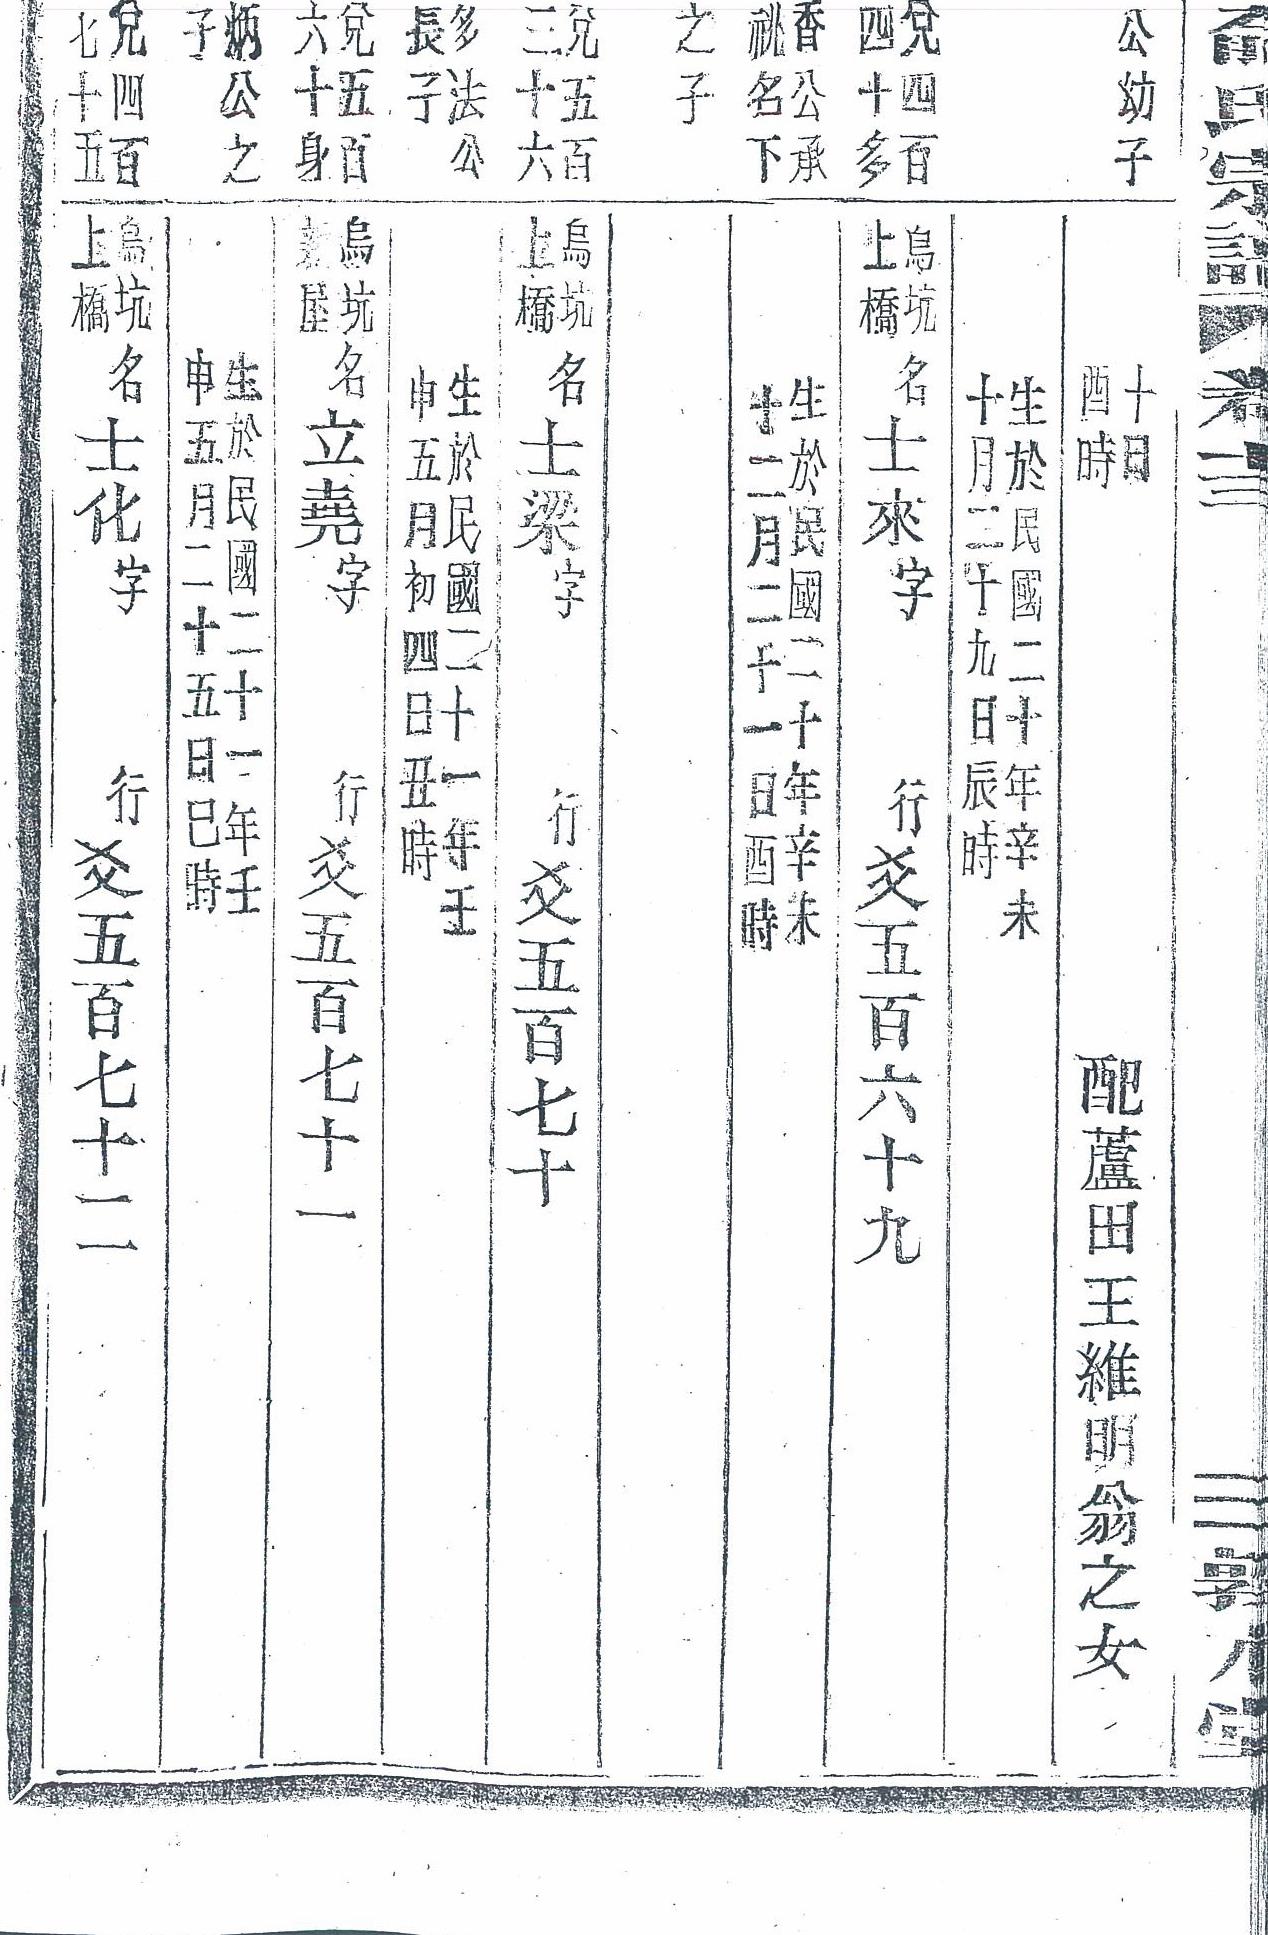 氏宗譜
卷十三
三
公幼子
十日
酉時
配蘆田王維明翁之女
生於民國二十年辛未
十月二十九日辰時
兌四百
四十多
烏坑
上橋
名士來字
行爻五百六十九
香公承
祧名下
生於民國二十年辛未
十二月二十一日酉時
之子
兌五百
三十六
烏坑
上橋
名士梁字
行爻五百七十
多法公
長子
生於民國二十一年壬
申五月初四日丑時
兌五百
六十身
烏坑
屋
名立堯字
行爻五百七十一
炳公之
子
生於民國二十一年壬
申五月二十五日巳時
兌四百
七十五
烏坑
上橋
名士化字
行爻五百七十二